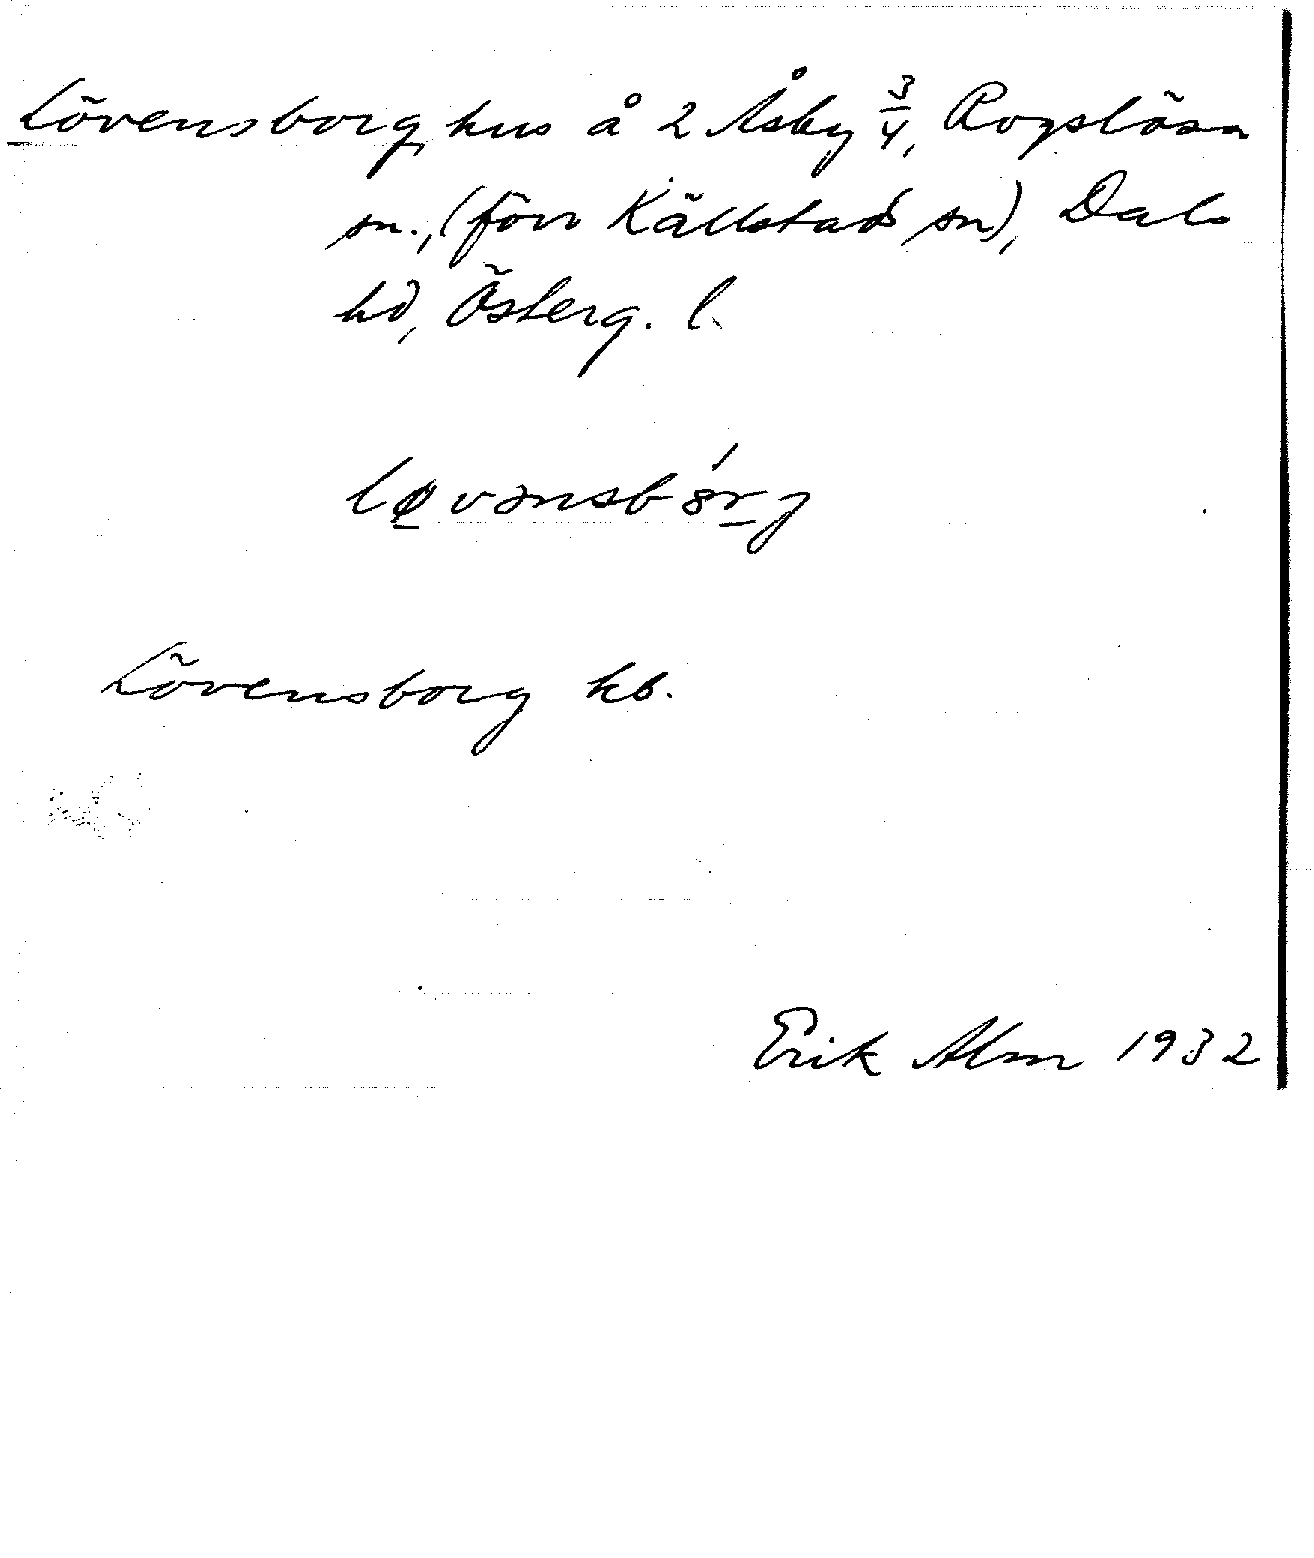 Lövensborg, hus å 2 Åsby 3/4, Rogslösa
sn., (förr Källstads sn), Dals
hd, Österg. l.
lø̱vənsbóṟg
Lövensborg kb.
Erik Alm 1932